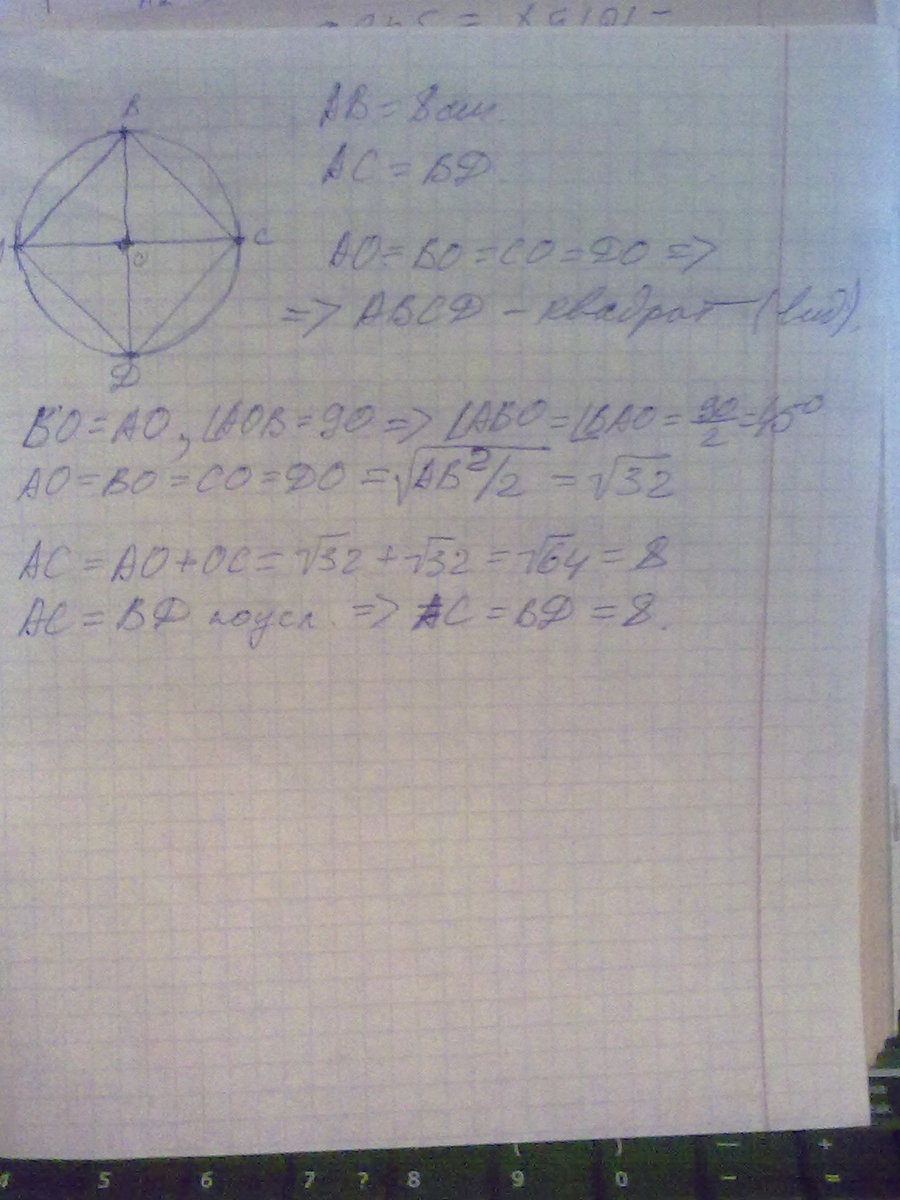 B
C
O
D
AB = 8 см.
AC = BD
AO = BO = CO = DO =>
=> ABCD – квадрат (вид).
BO = AO, ∠AOB = 90 => ∠ABO = ∠BAO = 90/2 = 45°
AO = BO = CO = DO = √AB²/2 = √32
AC = AO + OC = √32 + √32 = √64 = 8
AC = BD по усл. => AC = BD = 8.
4 5 6 7 ? 8 9 0 – – + =